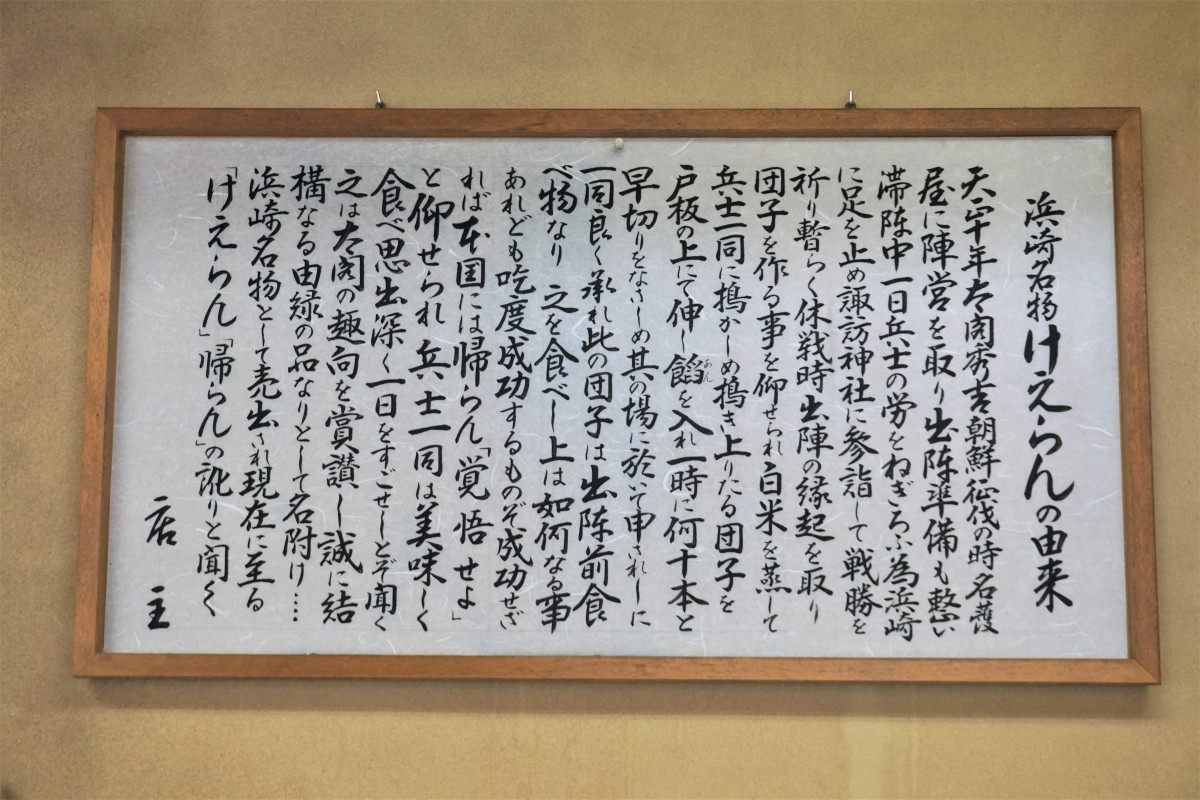 浜崎名物けえらんの由来
天正十年太閤秀吉朝鮮征伐の時名護
屋に陣営を取り出陣準備も整い
滞陣中一日兵士の労をねぎろふ為浜崎
に足を止め諏訪神社に参詣して戦勝を
祈り暫らく休戦時出陣の縁起を取り
団子を作る事を仰せられ白米を蒸して
兵士一同に搗かしめ搗き上りたる団子を
戸板の上にて伸し餡を入れ一時に何十本と
あん
早切りをなさしめ其の場に於いて申されしに
一同良く承れ此の団子は出陣前食
べ物なり 之を食べし上は如何なる事
あれども吃度成功するものぞ成功せざ
れば本国には帰らん「覚悟せよ」
と仰せられ兵士一同は美味しく
食べ思出深く一日をすごせしとぞ聞く
之は太閤の趣向を賞讃し誠に結
構なる由緑の品なりとして名附け‥‥
浜崎名物として売出され現在に至る
「けえらん」「帰らん」の訛りと聞く
店主